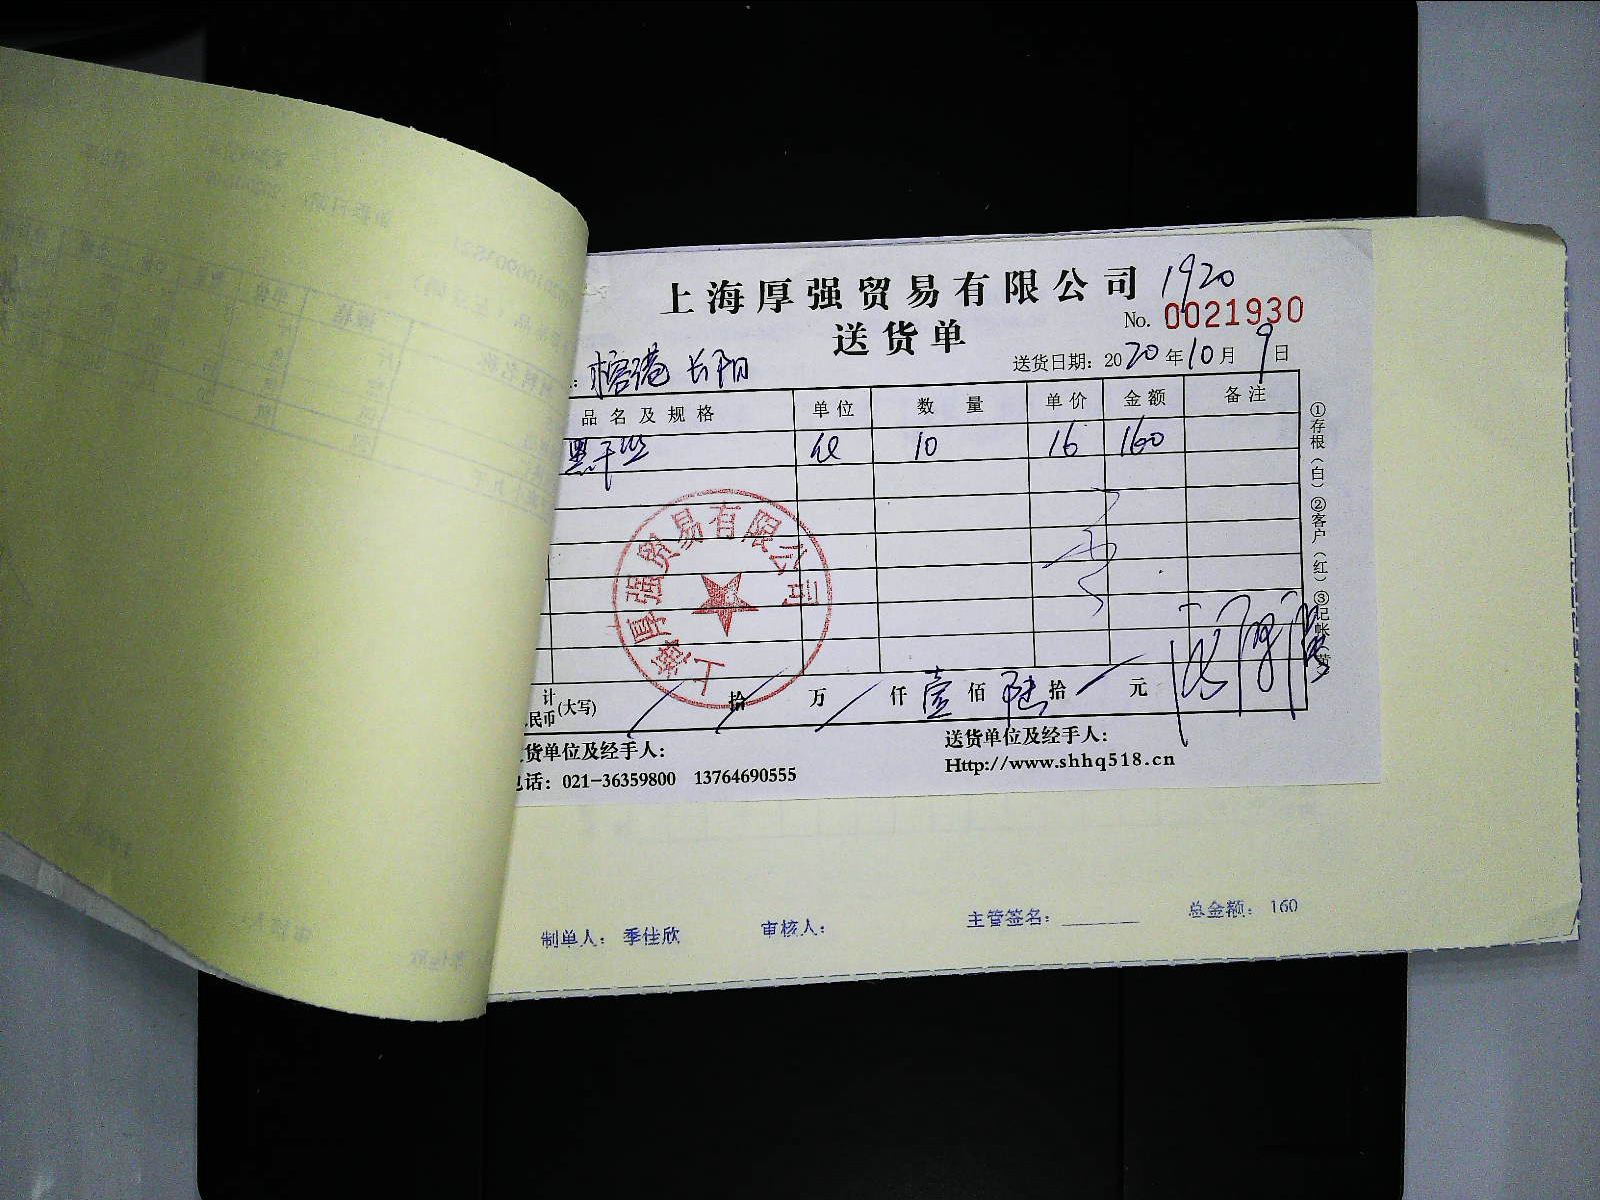 上海厚强贸易有限公司 1920
送货单 No. 0021930
榕港 长阳 送货日期: 2020年10月9日
品名及规格 单位 数量 单价 金额 备注
10 16 160
①存根(白)②客户(红)③记帐(黄)
上海厚强贸易有限公司
计
民币(大写) 拾 万 仟壹佰陆拾 元
货单位及经手人: 送货单位及经手人:
话: 021-36359800 13764690555 Http://www.shhq518.cn
制单人: 季佳欣 审核人: 主管签名: ________ 总金额: 160